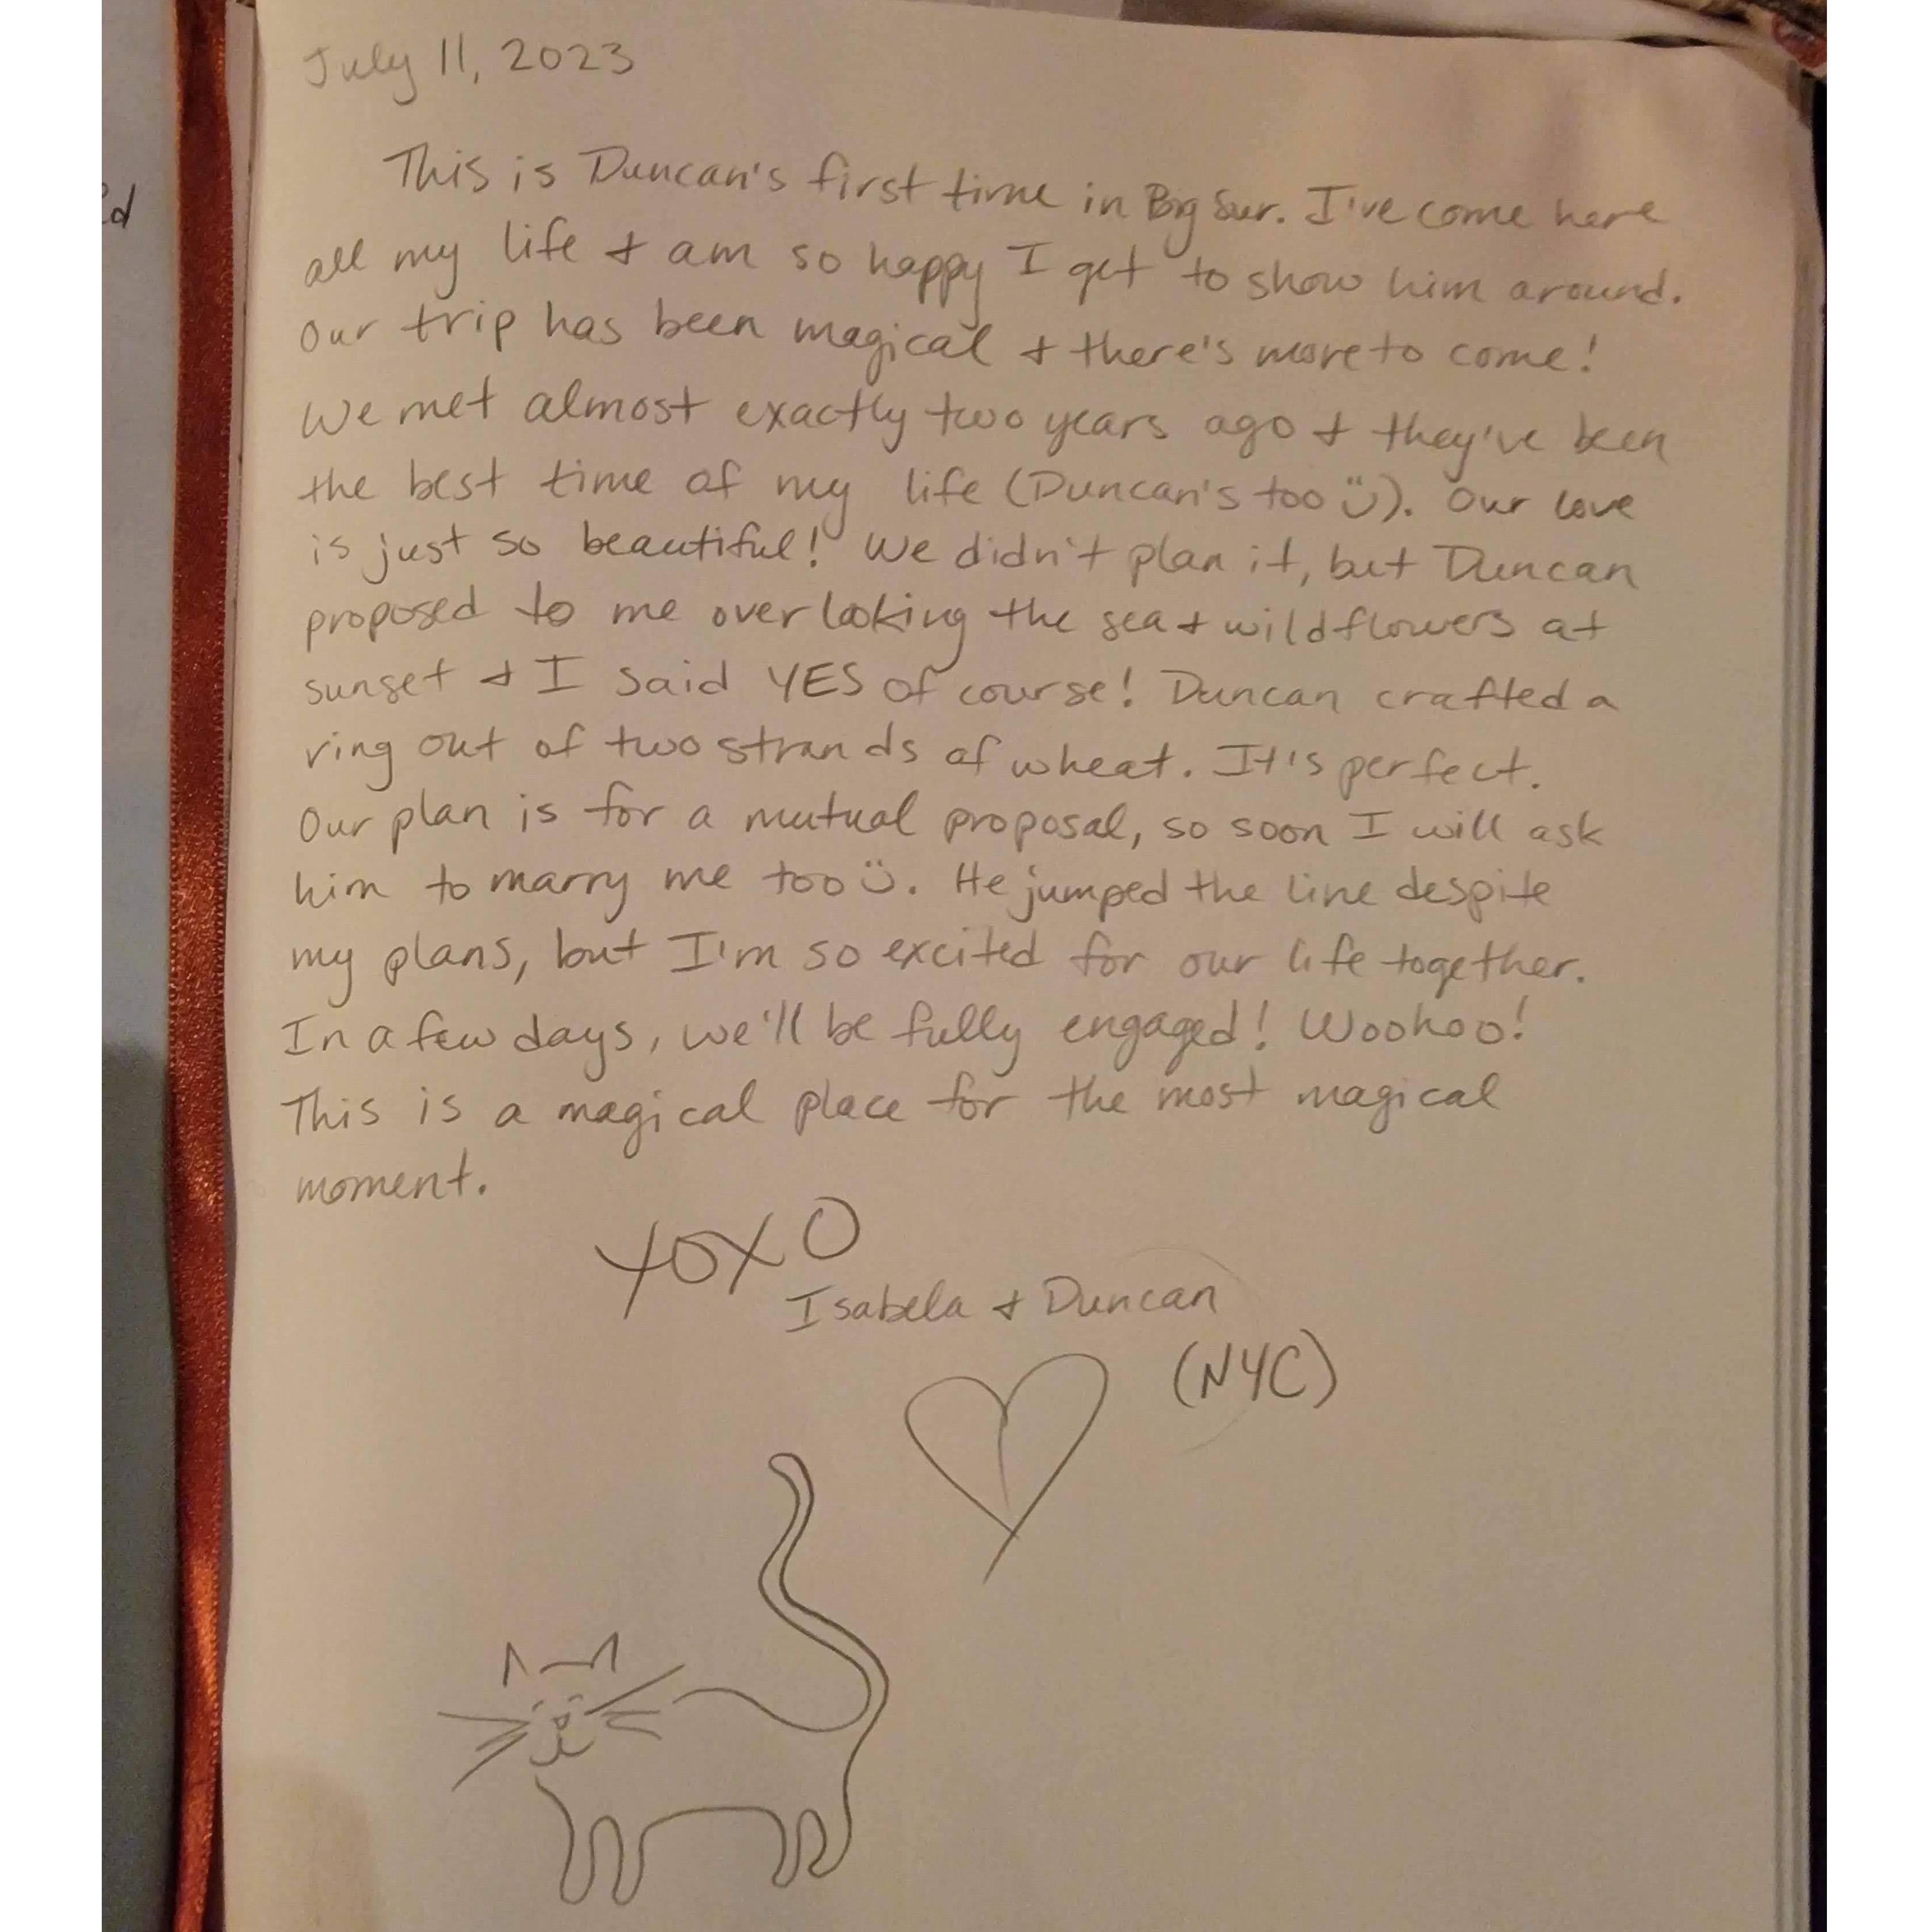 July 11, 2023
This is Duncan's first time in Big Sur. I've come here
all my life & am so happy I get to show him around.
Our trip has been magical & there's more to come!
We met almost exactly two years ago & they've been
the best time of my life (Duncan's too ü). Our love
is just so beautiful! We didn't plan it, but Duncan
proposed to me overlooking the sea & wildflowers at
sunset & I said YES of course! Duncan crafted a
ring out of two strands of wheat. It's perfect.
Our plan is for a mutual proposal, so soon I will ask
him to marry me too ü. He jumped the line despite
my plans, but I'm so excited for our life together.
In a few days, we'll be fully engaged! Woohoo!
This is a magical place for the most magical
moment.
XOXO
Isabela & Duncan
(NYC)